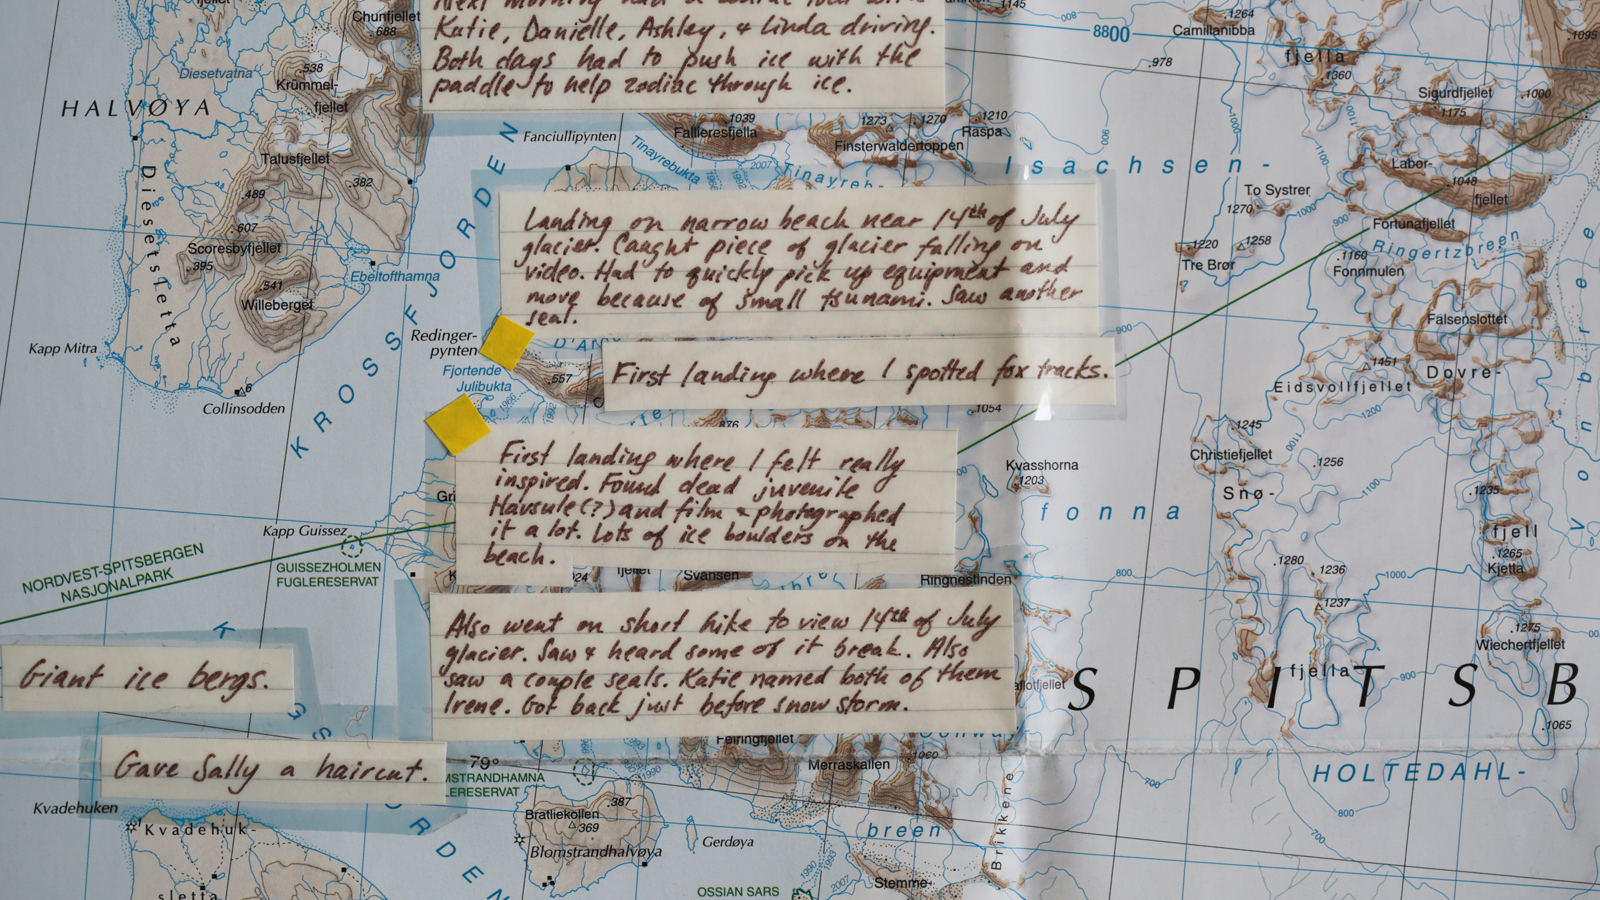 Next morning had a zodiac tour with
Katie, Danielle, Ashley, & Linda driving.
Both days had to push ice with the
paddle to help zodiac through ice.
Chunfjellet
.688
Diesetvatna
.538
Krümmel-
fjellet
HALVØYA
Talusfjellet
.382
.489
.607
Scoresbyfjellet
.395
.541
Willeberget
Diesetsletta
Ebeltofthamna
Kapp Mitra
6
Collinsodden
KROSSFJORDEN
Fanciullipynten
Tinayrebukta
2007
Tinayreb-
1039
Fallieresfjella
1273
1270
Finsterwaldertoppen
1210
Raspa
.1145
8800
800
1264
Camillanibba
.978
900
1000
fjella
1360
Sigurdfjellet
.1000
1175
.1095
Isachsen-
1100
Labor-
1048
fjellet
To Systrer
1270
1000
900
Fortunafjellet
Ringertzbreen
.1220
1258
Tre Brør
.1160
Fonnmulen
Landing on narrow beach near 14th of July
glacier. Caught piece of glacier falling on
video. Had to quickly pick up equipment and
move because of small tsunami. Saw another
seal.
Redinger-
pynten
D'Ar
Fjortende
Julibukta
.557
First landing where I spotted fox tracks.
900
Falsenslottet
.1451
Dovre-
Eidsvollfjellet
1200
.1054
.876
First landing where I felt really
inspired. Found dead juvenile
Havsule(?) and film & photographed
it a lot. Lots of ice boulders on the
beach.
Kvasshorna
1203
.1245
Christiefjellet
1100
.1256
1100
Snø-
.1235
fonna
fjell
.1265
Kjetta
Kapp Guissez
GUISSEZHOLMEN
FUGLERESERVAT
NORDVEST-SPITSBERGEN
NASJONALPARK
fjellet
Svansen
Ringnestinden
800
.1280
1236
1000
1237
.1275
Wiechertfjellet
Also went on short hike to view 14th of July
glacier. Saw & heard some of it break. Also
saw a couple seals. Katie named both of them
Irene. Got back just before snow storm.
Giant ice bergs.
SPITSB
fjella
900
.1065
Gave Sally a haircut.
79°
MSTRANDHAMNA
LERESERVAT
Feiringfjellet
1990
Conway
1060
Merraskallen
HOLTEDAHL-
700
800
700
Kvadehuken
Kvadehuk-
sletta
Bratliekollen
.387
369
Blomstrandhalvøya
Gerdøya
breen
Brikkene
Stemme-
OSSIAN SARS
1990
1993
2007